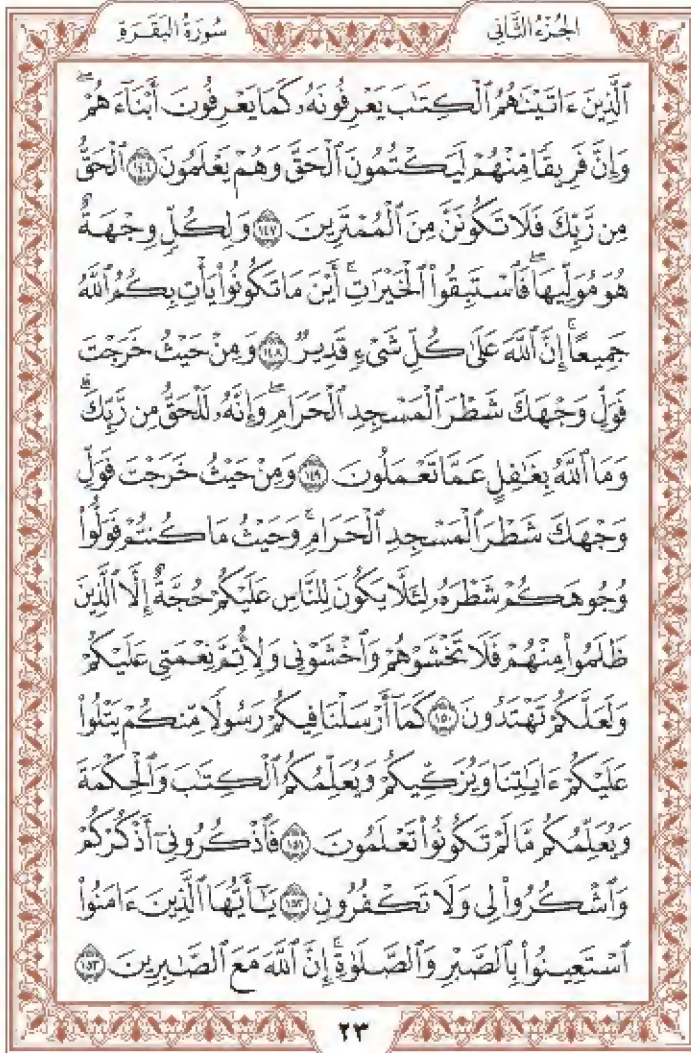 الجُزْءُ الثَّانِي
سُورَةُ البَقَرَةِ
ٱلَّذِينَ ءَاتَيْنَٰهُمُ ٱلْكِتَٰبَ يَعْرِفُونَهُۥ كَمَا يَعْرِفُونَ أَبْنَآءَهُمْ ۖ
وَإِنَّ فَرِيقًا مِّنْهُمْ لَيَكْتُمُونَ ٱلْحَقَّ وَهُمْ يَعْلَمُونَ ١٤٦ ٱلْحَقُّ
مِن رَّبِّكَ فَلَا تَكُونَنَّ مِنَ ٱلْمُمْتَرِينَ ١٤٧ وَلِكُلٍّ وِجْهَةٌ
هُوَ مُوَلِّيهَا ۖ فَٱسْتَبِقُوا۟ ٱلْخَيْرَٰتِ ۚ أَيْنَ مَا تَكُونُوا۟ يَأْتِ بِكُمُ ٱللَّهُ
جَمِيعًا ۚ إِنَّ ٱللَّهَ عَلَىٰ كُلِّ شَىْءٍ قَدِيرٌ ١٤٨ وَمِنْ حَيْثُ خَرَجْتَ
فَوَلِّ وَجْهَكَ شَطْرَ ٱلْمَسْجِدِ ٱلْحَرَامِ ۖ وَإِنَّهُۥ لَلْحَقُّ مِن رَّبِّكَ ۗ
وَمَا ٱللَّهُ بِغَٰفِلٍ عَمَّا تَعْمَلُونَ ١٤٩ وَمِنْ حَيْثُ خَرَجْتَ فَوَلِّ
وَجْهَكَ شَطْرَ ٱلْمَسْجِدِ ٱلْحَرَامِ ۚ وَحَيْثُ مَا كُنتُمْ فَوَلُّوا۟
وُجُوهَكُمْ شَطْرَهُۥ لِئَلَّا يَكُونَ لِلنَّاسِ عَلَيْكُمْ حُجَّةٌ إِلَّا ٱلَّذِينَ
ظَلَمُوا۟ مِنْهُمْ فَلَا تَخْشَوْهُمْ وَٱخْشَوْنِى وَلِأُتِمَّ نِعْمَتِى عَلَيْكُمْ
وَلَعَلَّكُمْ تَهْتَدُونَ ١٥٠ كَمَآ أَرْسَلْنَا فِيكُمْ رَسُولًا مِّنكُمْ يَتْلُوا۟
عَلَيْكُمْ ءَايَٰتِنَا وَيُزَكِّيكُمْ وَيُعَلِّمُكُمُ ٱلْكِتَٰبَ وَٱلْحِكْمَةَ
وَيُعَلِّمُكُم مَّا لَمْ تَكُونُوا۟ تَعْلَمُونَ ١٥١ فَٱذْكُرُونِىٓ أَذْكُرْكُمْ
وَٱشْكُرُوا۟ لِى وَلَا تَكْفُرُونِ ١٥٢ يَٰٓأَيُّهَا ٱلَّذِينَ ءَامَنُوا۟
ٱسْتَعِينُوا۟ بِٱلصَّبْرِ وَٱلصَّلَوٰةِ ۚ إِنَّ ٱللَّهَ مَعَ ٱلصَّٰبِرِينَ ١٥٣
٢٣